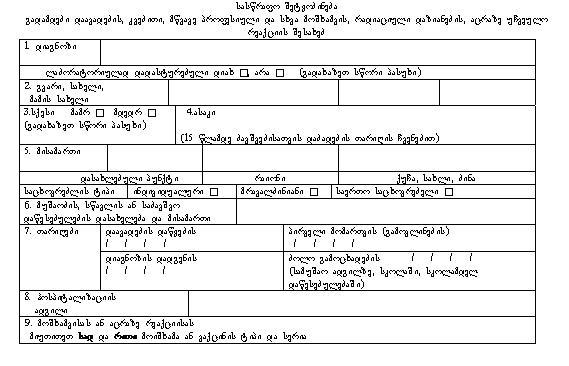 სასწრაფო შეტყობინება
გადამდები დაავადების, კვებითი, მწვავე პროფესიული და სხვა მოშხამვის, რადიაციული დაზიანების, აცრაზე უჩვეულო
რეაქციის შესახებ
1. დიაგნოზი
ლაბორატორიულად დადასტურებული დიახ □, არა □ (გადახაზეთ სწორი პასუხი)
2. გვარი, სახელი,
მამის სახელი
3.სქესი მამრ □ მდედრ □
(გადახაზეთ სწორი პასუხი)
4.ასაკი
(15 წლამდე ბავშვებისათვის დაბადების თარიღის ჩვენებით)
5. მისამართი
დასახლებული პუნქტი რაიონი ქუჩა, სახლი, ბინა
საცხოვრებლის ტიპი ინდივიდუალური □ მრავალბინიანი □ საერთო საცხოვრებელი □
6. მუშაობის, სწავლის ან საბავშვო
დაწესებულების დასახელება და მისამართი
7. თარიღები
დაავადების დაწყების
/ / / /
პირველი მომართვის (გამოვლინების)
/ / / /
დიაგნოზის დადგენის
/ / / /
ბოლო გამოცხადების / / / /
(სამუშაო ადგილზე, სკოლაში, სკოლამდელ
დაწესებულებაში)
8. ჰოსპიტალიზაციის
ადგილი
9. მოშხამვისას ან აცრაზე რეაქციისას
მიუთითეთ სად და რითი მოიშხამა ან ვაქცინის ტიპი და სერია